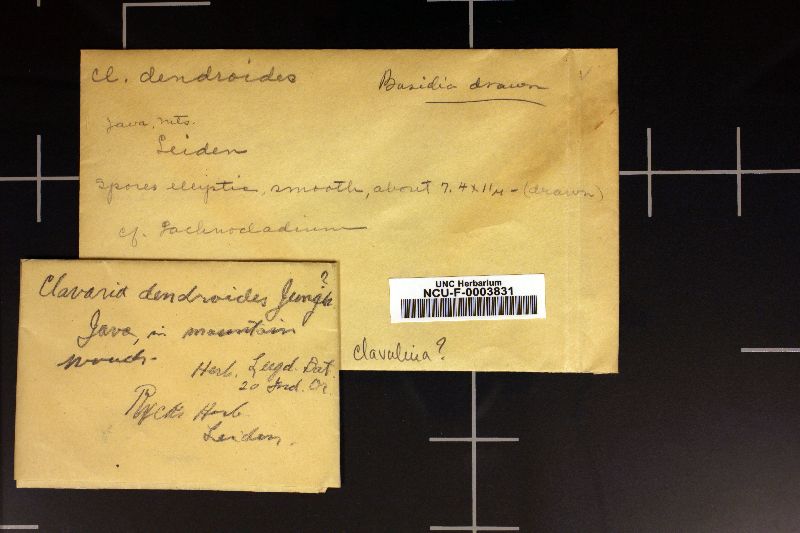 Cl. dendroides
Basidia drawn
Java, mts.
Leiden
Spores elliptic, smooth, about 7.4 x 11µ - (drawn)
cf. Lachnocladium
UNC Herbarium
NCU-F-0003831
Clavulina?
?
Clavaria dendroides Jungh
Java, in mountain
woods -
Herb. Lugd. Bat.
20 Ind. Or.
Herb.
Leiden.